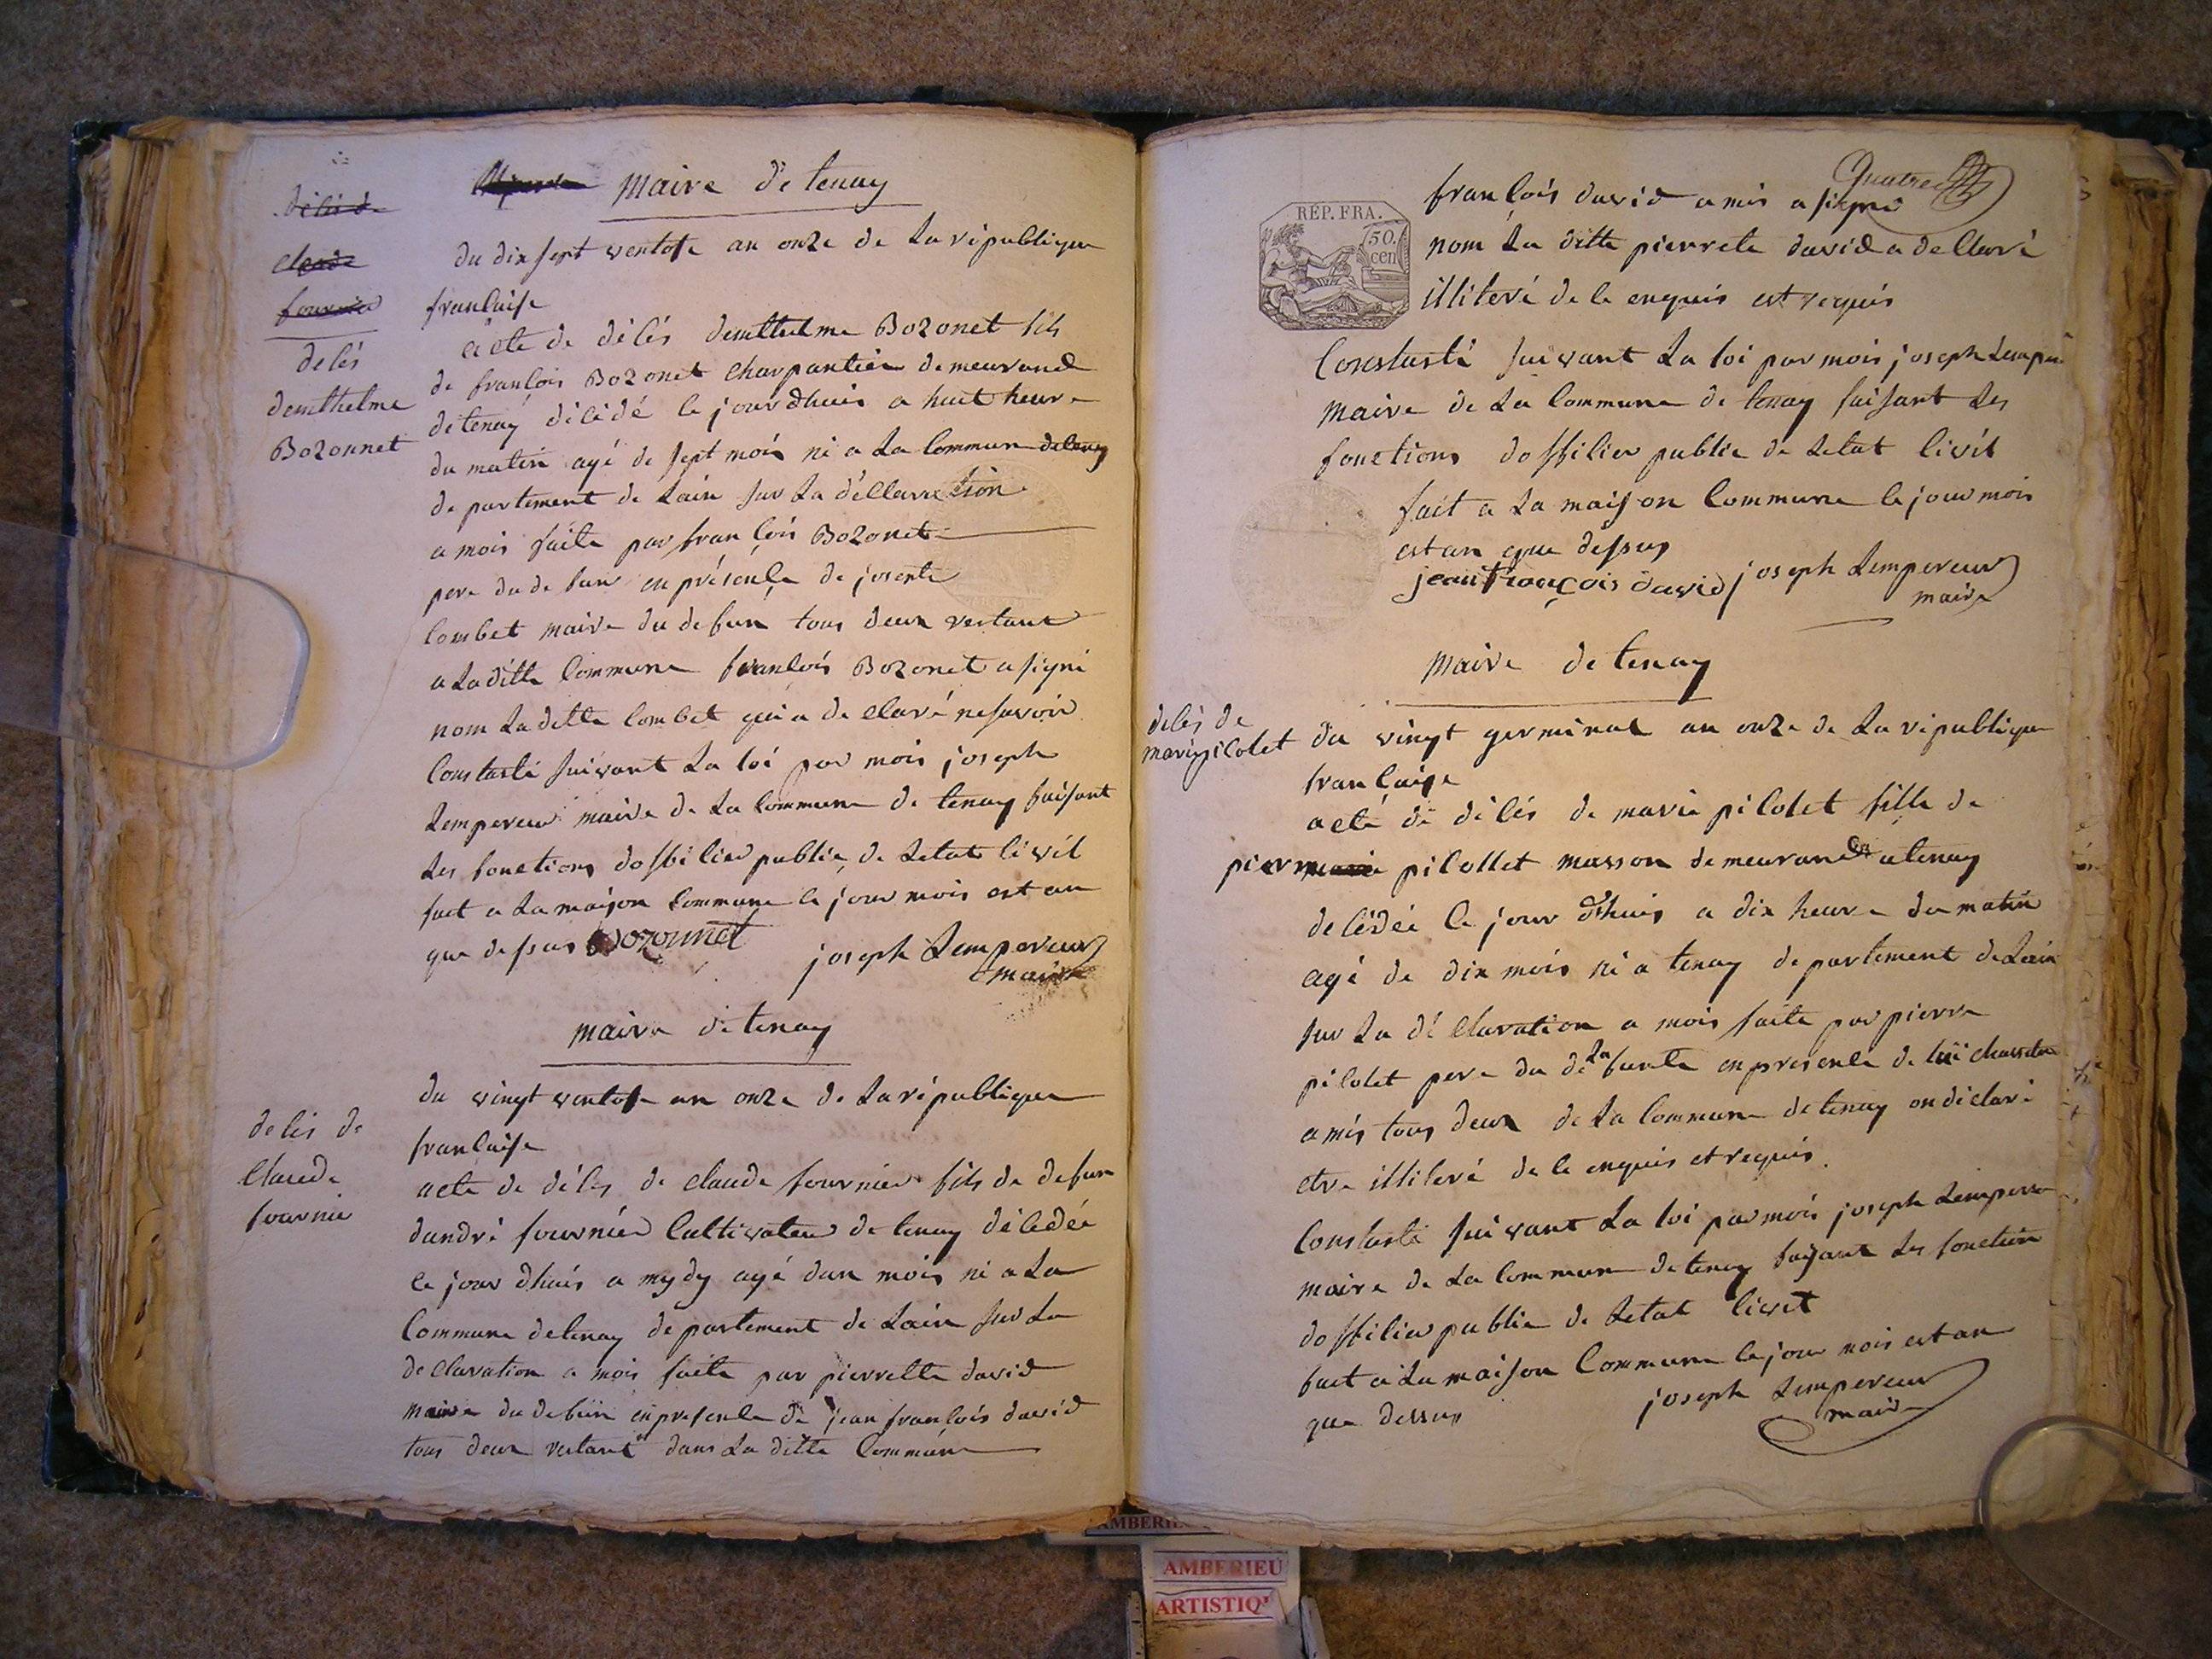 maire de tenay
décès de
claude
fournier
du dix sept ventose an onze de La république
francaise
acte de décés demthelme Bozonet fils
de francois Bozonet charpantier demeurand
de tenay décédé ce jourdhuis a huit heure
du matin agé de sept mois né a La commune detenay
departement de Lain sur La déllaration
a mois faite par francois Bozonet
pere du defun en présence de josente
combet maire du defun tous deux restant
a Laditte commune francois Bozonet a signé
nom Laditte combet qui a declaré ne savoir
constasté suivant La loi par mois joseph
Lempereur maire de La commune de tenay faisant
Les fonctions dofficier public de Letat civil
fact a La maison commune ce jour mois est an
que dessus Bozonnet
joseph Lempereur
maire
decés
demthelme
Bozonnet
maire de tenay
du vingt ventose an onze de La république
francaise
acte de décés de claude fournier fils de defun
dandré fournier cultivateur de tenay décédée
ce jour dhuis a mydy agé dun mois né a La
commune detenay departement de Lain sur La
declaration a mois faite par pierrette david
maire du defun en presence de jean francois david
tous deux restant dans La ditte commune
decés de
claude
fournier
RÉP. FRA.
50.
cen
francois david a mis a signé
nom La ditte pierrete david a dellaré
illiteré de ce enquis est requis
constasté suivant La loi par mois joseph Lemper
maire de La commune de tenay faisant Les
fonctions dofficier public de Letat civil
fait a La maison commune ce jour mois
est an que dessus
jean françois david
joseph Lempereur
maire
maire de tenay
decés de
marie pilotet
du vingt germinal an onze de La république
francaise
acte de décés de marie pilotet fille de
pier pilottet masson demeurand a tenay
decédée ce jour dhuis a dix heure du matin
agé de dix mois né a tenay departement de Lain
sur La déclaration a mois faite par pierre
pilotet pere du de La funte en presence de
a mis tous deux de La commune de tenay on déclaré
etre illiteré de ce enquis et requis
constasté suivant La loi par mois joseph Lempereur
maire de La commune de tenay faisant Les fonction
dofficier public de Letat civil
fact a La maison commune ce jour mois est an
que dessus
joseph Lempereur
maire
AMBERIEU
ARTISTIQ'